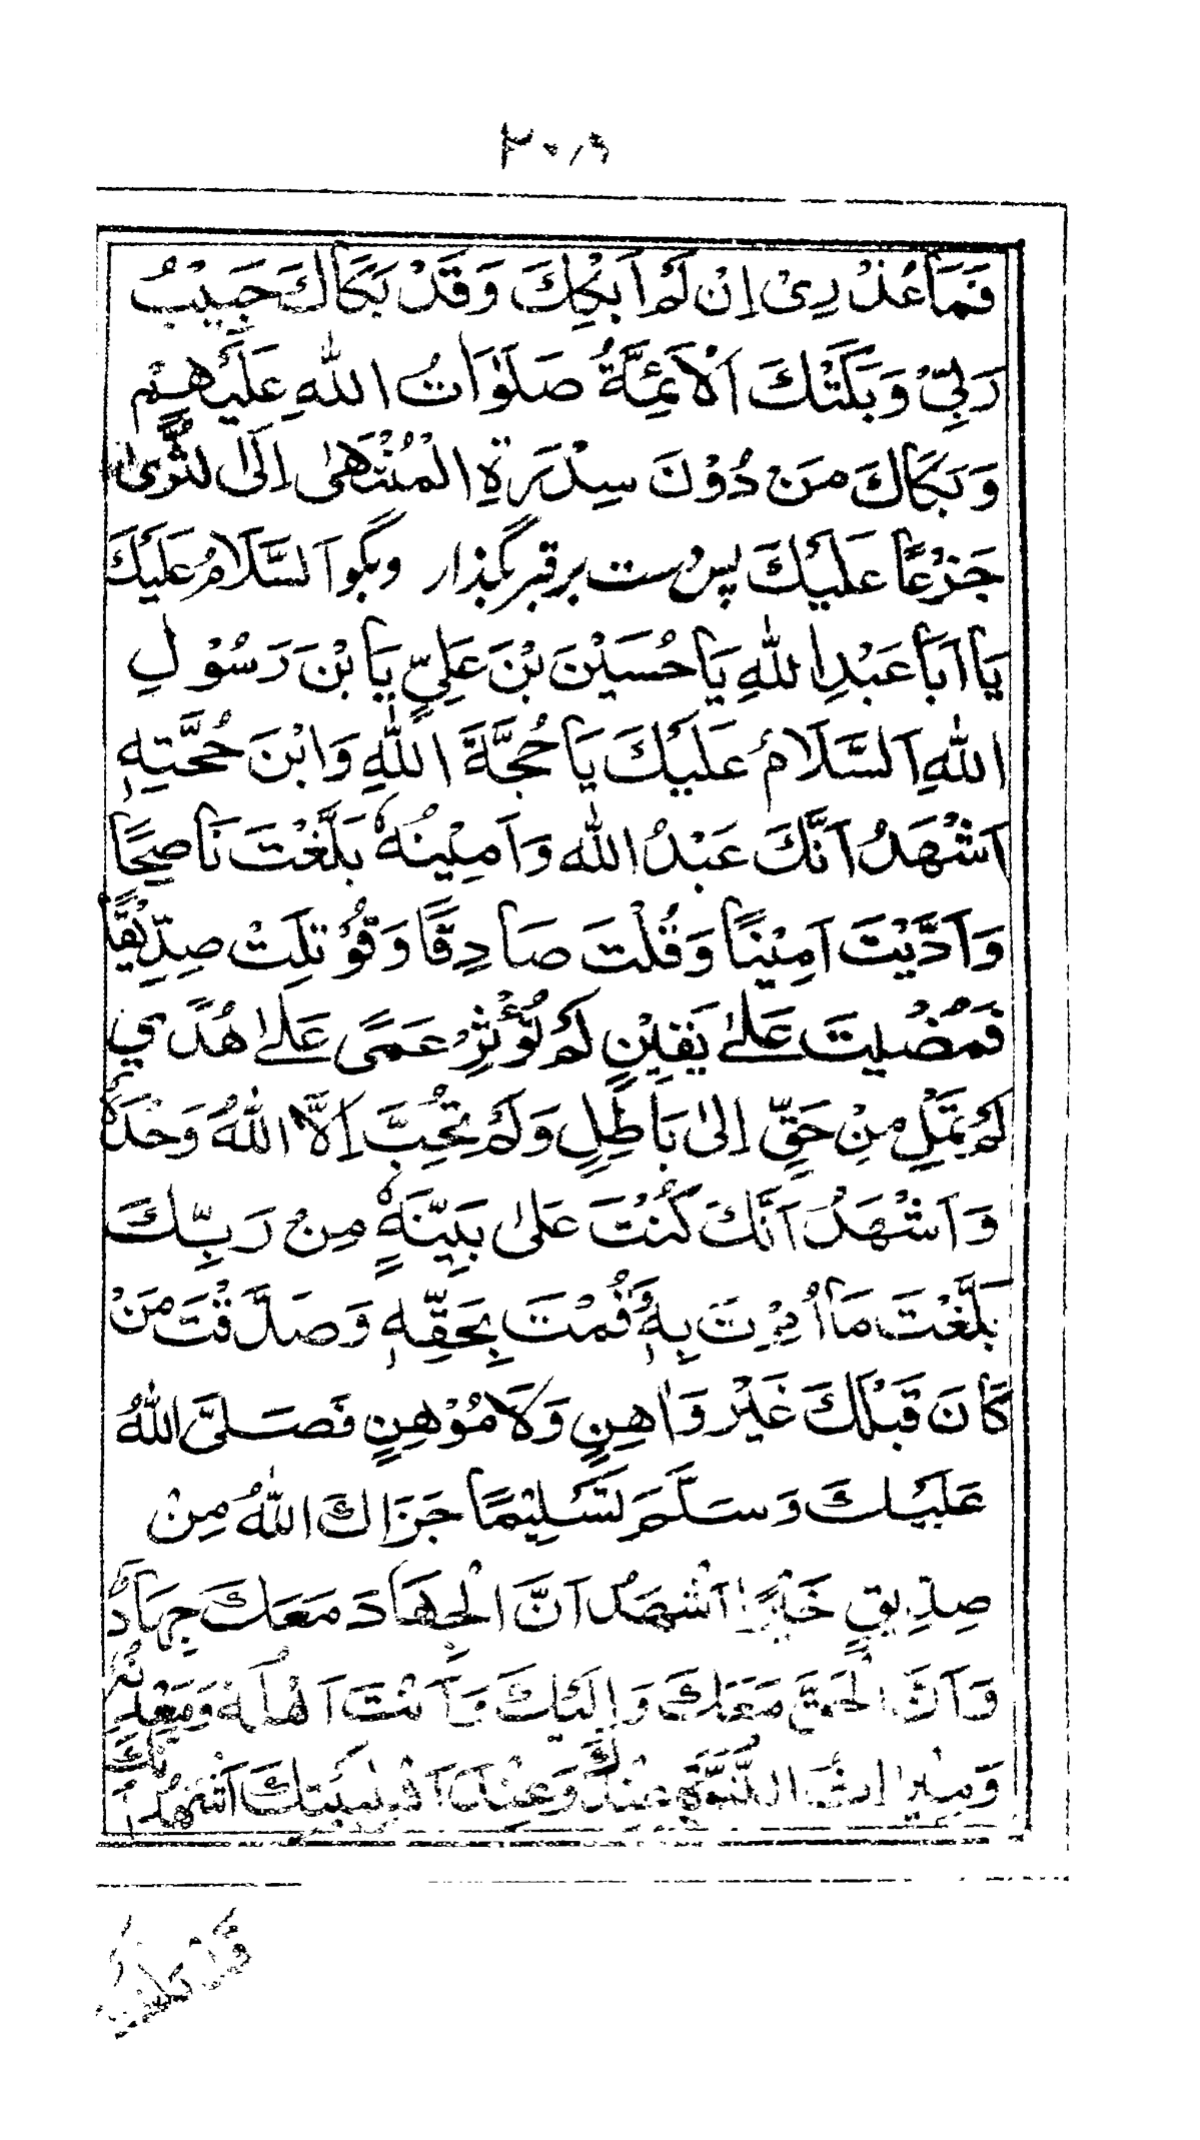 فَمَا عُذْرِىْ اِنْ لَمْ اَبْكِكَ وَقَدْ بَكَاكَ حَبِيْبُ
رَبِّىْ وَبَكَتْكَ اَلْاَئِمَّةُ صَلَوَاتُ اللّٰهِ عَلَيْهِمْ
وَبَكَاكَ مَنْ دُوْنَ سِدْرَةِ الْمُنْتَهٰى اِلَى الثَّرىٰ
جَزَعًا عَلَيْكَ پس دست بر قبر بگذار وبگو اَلسَّلَامُ عَلَيْكَ
يَا اَبَا عَبْدِ اللّٰهِ يَا حُسَيْنَ بْنَ عَلِيٍّ يَا بْنَ رَسُوْلِ
اللّٰهِ اَلسَّلَامُ عَلَيْكَ يَا حُجَّةَ اللّٰهِ وَابْنَ حُجَّتِهٖ
اَشْهَدُ اَنَّكَ عَبْدُ اللّٰه وَاَمِيْنُهٗ بَلَّغْتَ نَاصِحًا
وَاَدَّيْتَ اَمِيْنًا وَقُلْتَ صَادِقًا وَقُوْتِلَتْ صِدِّيْقًا
فَمَضَيْتَ عَلٰى يَقِيْنٍ لَمْ تُؤْثِرْ عَمًى عَلٰى هُدًى
لَمْ تَمِلْ مِنْ حَقٍّ اِلىٰ بَاطِلٍ وَلَمْ تُحِبَّ اِلَّا اللّٰهُ وَحْدَهٗ
وَاَشْهَدُ اَنَّكَ كُنْتَ عَلىٰ بَيِّنَةٍ مِنْ رَبِّكَ
بَلَّغْتَ مَا اُمِرْتَ بِهٖ وَقُمْتَ بِحَقِّهٖ وَصَدَّقْتَ مَنْ
كَانَ قَبْلَكَ غَيْرَ وَاهِنٍ وَلَا مُوْهِنٍ فَصَلَّى اللّٰهُ
عَلَيْكَ وَسَلَّمَ تَسْلِيْمًا جَزَاكَ اللّٰهُ مِنْ
صِدِّيقٍ خَيْرًا اَشْهَدُ اَنَّ الْجِهَادَ مَعَكَ جِهَادٌ
وَاَنَّ الْحَقَّ مَعَكَ وَاِلَيْكَ وَاَنْتَ اَهْلُهٗ وَمَعْدِنُهٗ
وَمِيْرَاثَ النُّبُوَّةِ عِنْدَكَ وَعِنْدَ اَهْلِ بَيْتِكَ اَشْهَدُ اَنَّكَ